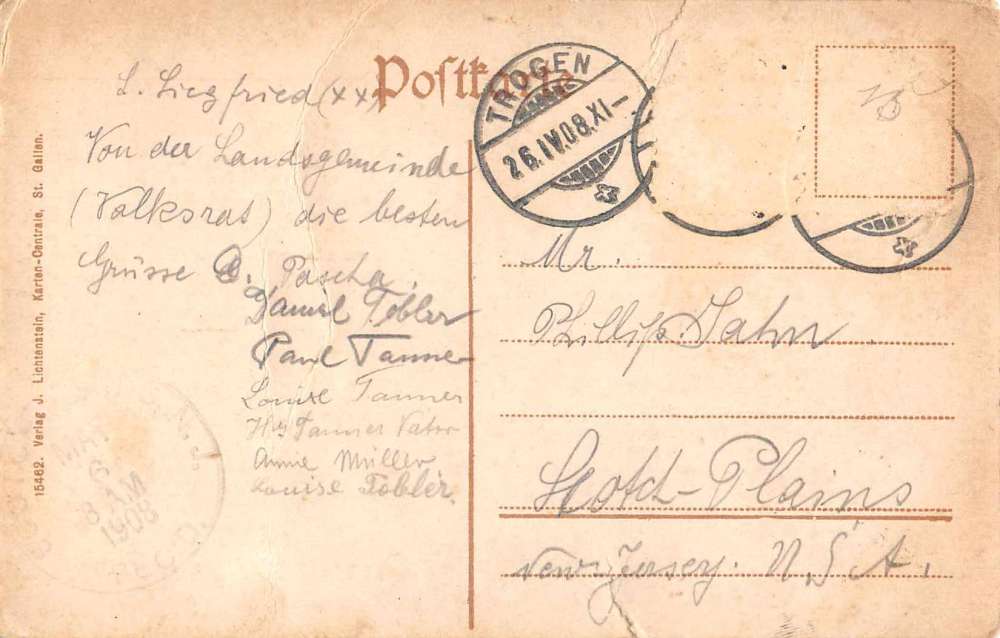 Postkarte
TROGEN
26.IV.08.XI-
L. Siegfried (xx)
Von der Landsgemeinde
(Volksrat) die besten
Grüsse Pascha
Daniel Tobler
Paul Tanner
Louise Tanner
Tanner Vater
Annie Müller
Louise Tobler.
Mr.
Phillip Jahn
Scotch-Plains
New-Jersey. N. S. A.
15462. Verlag J. Lichtenstein, Karten-Centrale, St. Gallen.
8 AM
1908